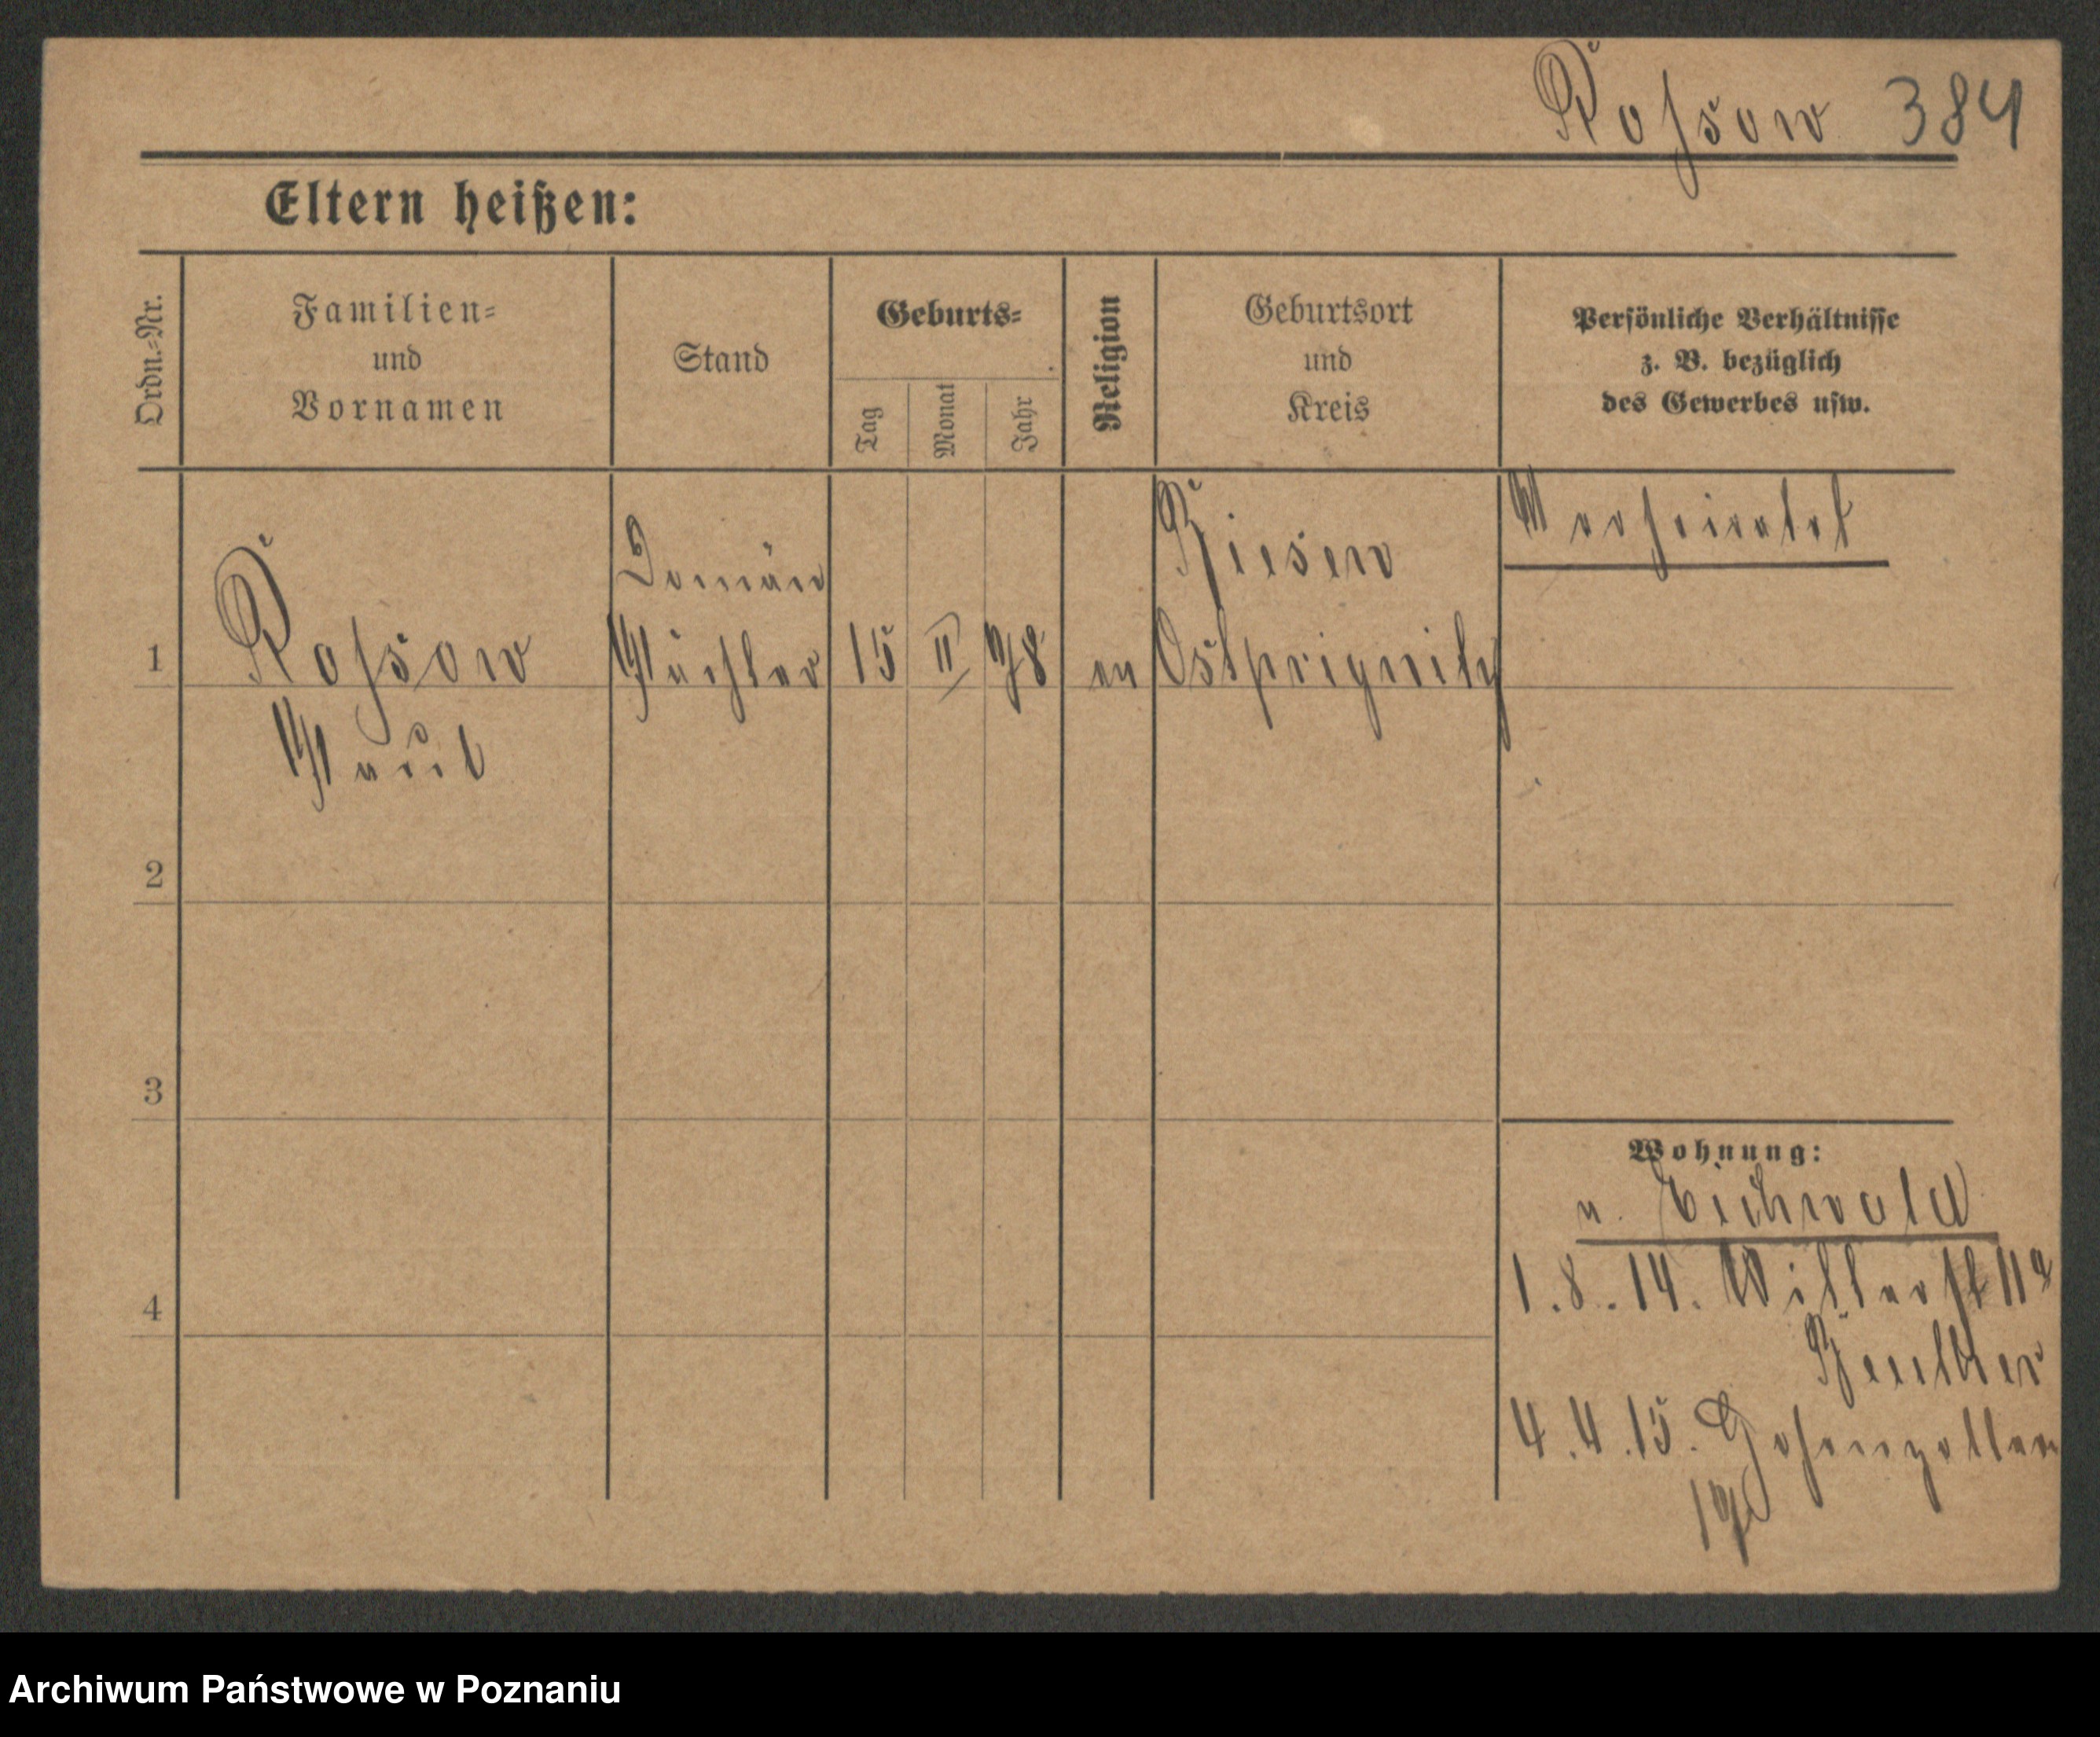 Rossow 384
Eltern heißen:
Ordn.-Nr.
Familien-
und
Vornamen
Stand
Geburts-
Tag
Monat
Jahr
Religion
Geburtsort
und
Kreis
Persönliche Verhältnisse
z. B. bezüglich
des Gewerbes usw.
1
Rossow
Paul
Domän
Pächter
15
II
78
ev
Ostprignitz
Verheiratet
2
3
4
Wohnung:
n. Eichwald
1.8.14.
4.4.15. Hohenzollern
Archiwum Państwowe w Poznaniu